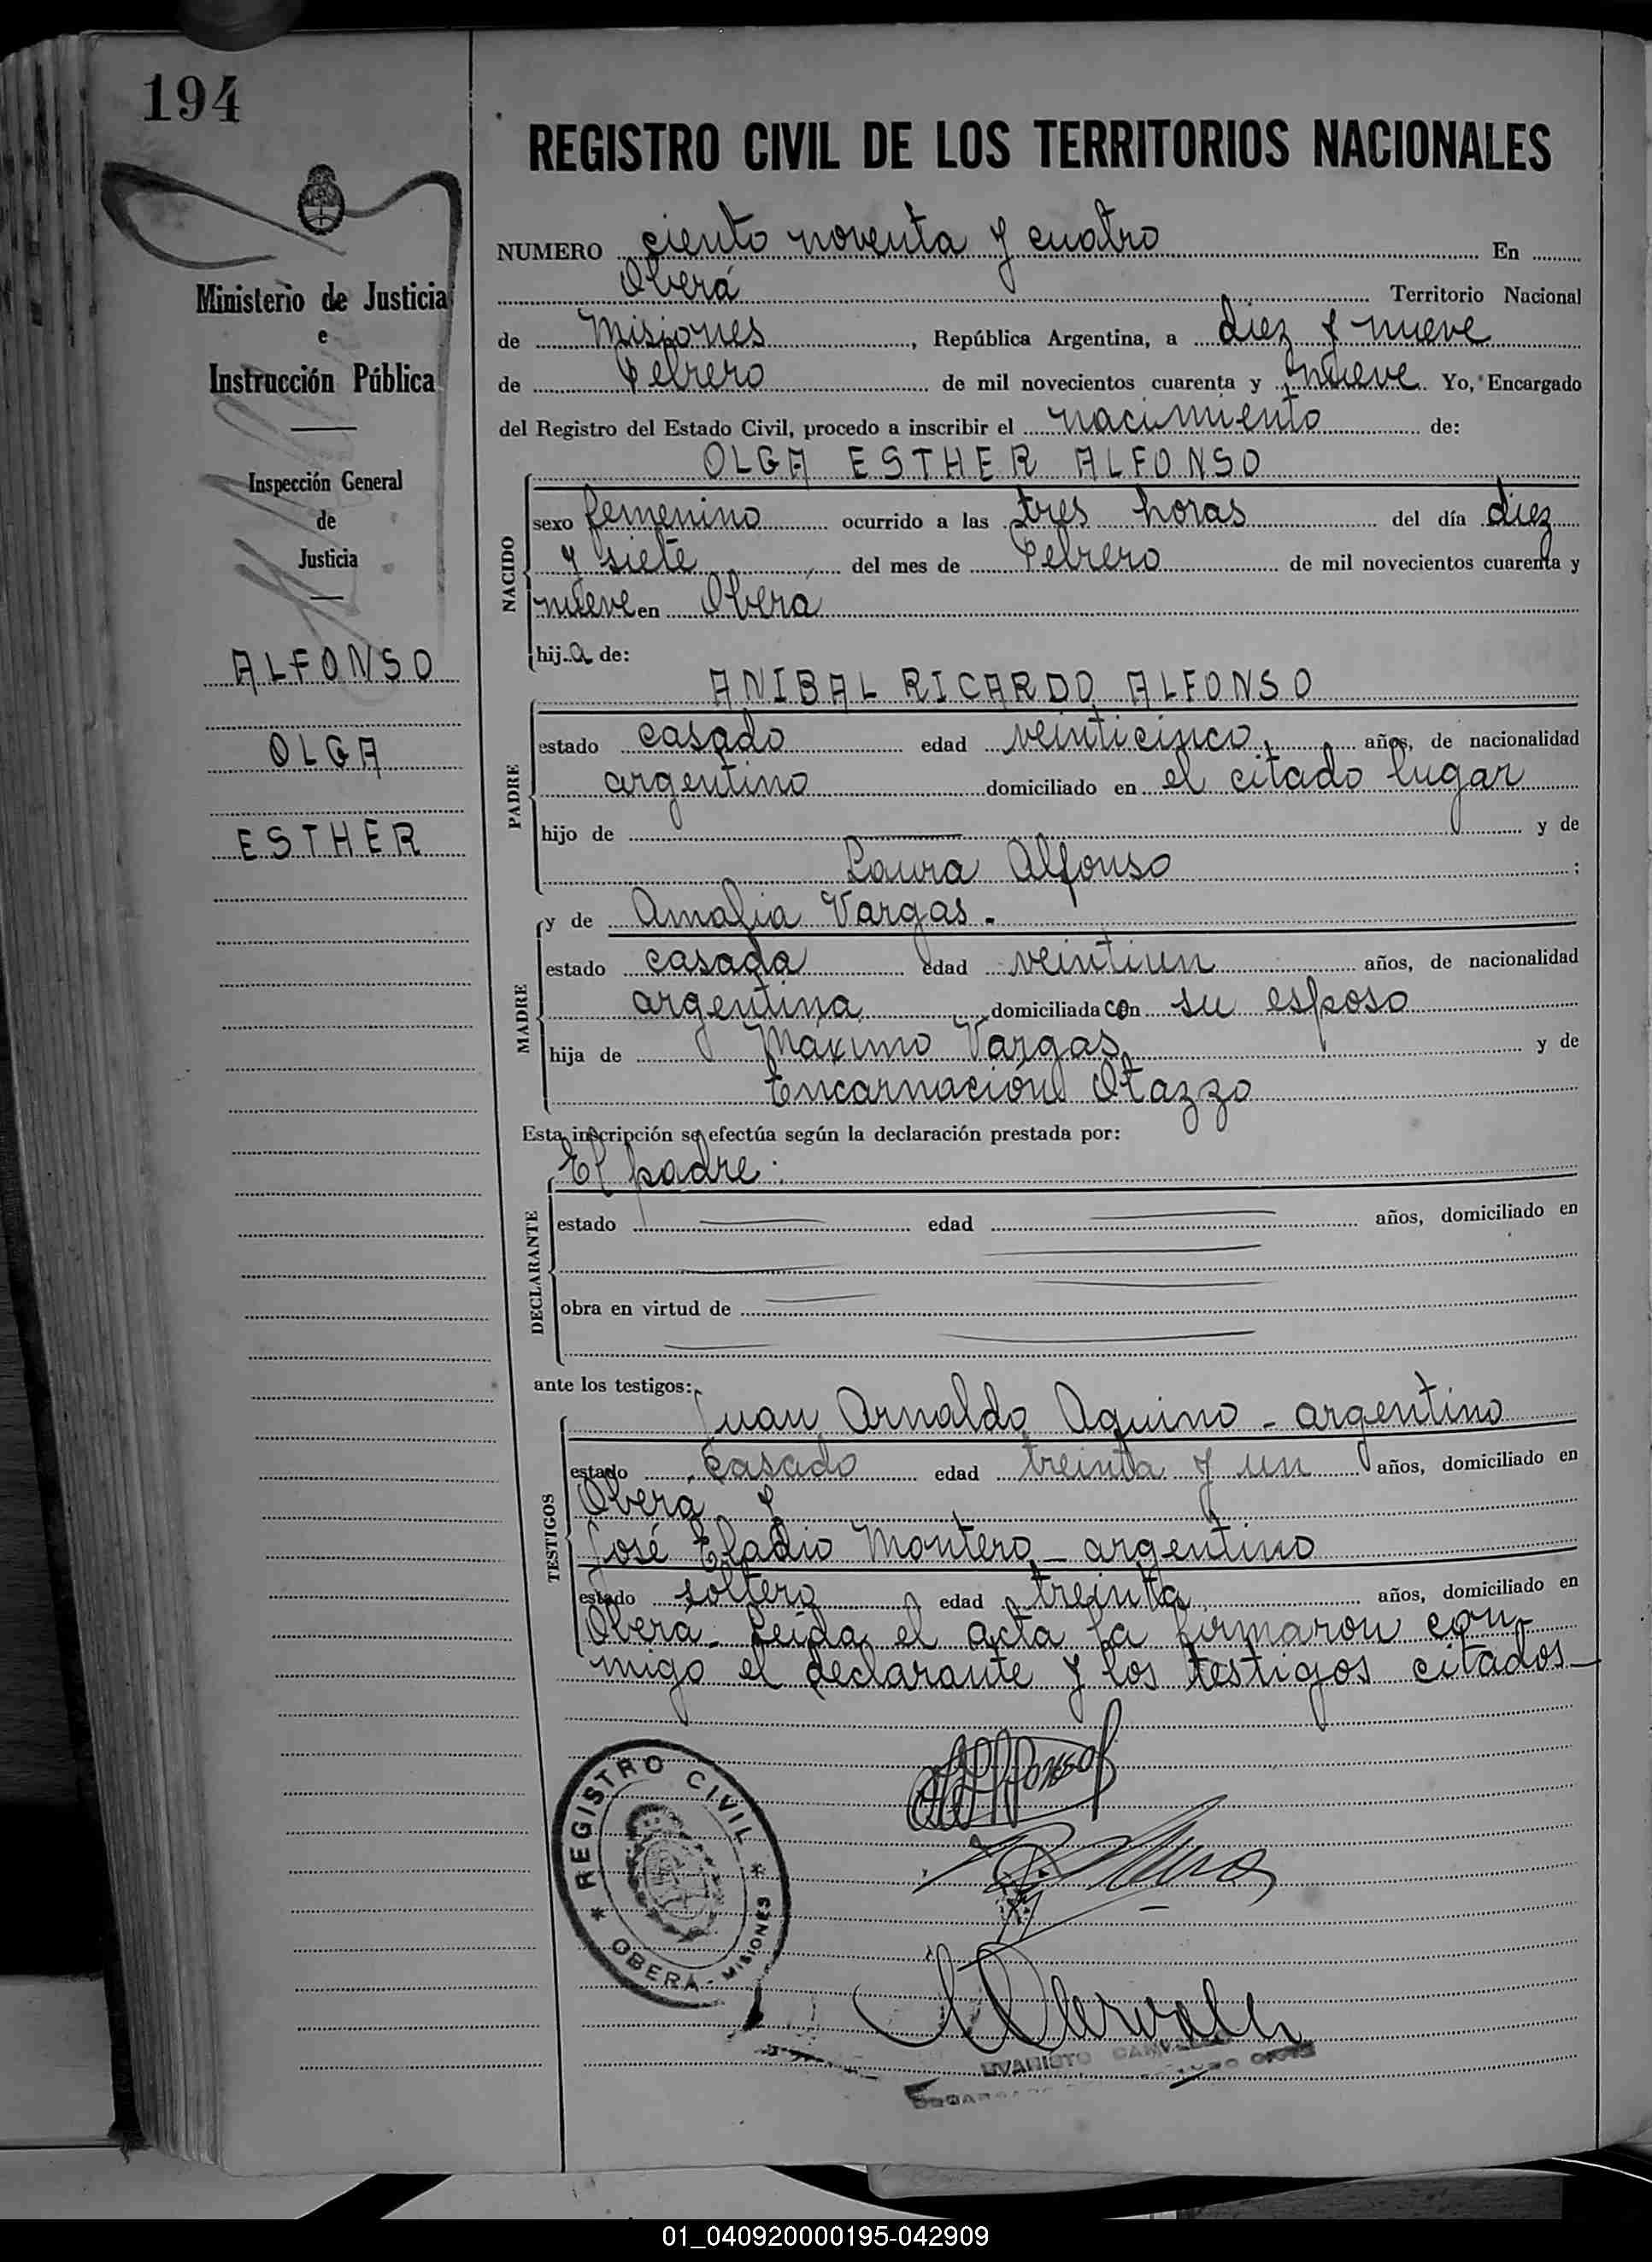 194
REGISTRO CIVIL DE LOS TERRITORIOS NACIONALES
NUMERO ciento noventa y cuatro En
Oberá Territorio Nacional
de Misiones, República Argentina, a diez y nueve
de Febrero de mil novecientos cuarenta y nueve Yo, Encargado
del Registro del Estado Civil, procedo a inscribir el nacimiento de:
OLGA ESTHER ALFONSO
NACIDO
sexo femenino ocurrido a las tres horas del día diez
y siete del mes de Febrero de mil novecientos cuarenta y
nueve en Oberá
hija de:
ANIBAL RICARDO ALFONSO
PADRE
estado casado edad veinticinco años, de nacionalidad
argentino domiciliado en el citado lugar
hijo de y de
Laura Alfonso ;
y de Amalia Vargas.-
MADRE
estado casada edad veintiun años, de nacionalidad
argentina domiciliada con su esposo
hija de Máximo Vargas y de
Encarnación Otazzo
Esta inscripción se efectúa según la declaración prestada por:
El padre:
DECLARANTE
estado edad años, domiciliado en
obra en virtud de
ante los testigos:
Juan Arnaldo Aquino - argentino
TESTIGOS
estado casado edad treinta y un años, domiciliado en
Oberá y
José Eladio Montero - argentino
estado soltero edad treinta años, domiciliado en
Oberá.- Leida el acta la firmaron con-
migo el declarante y los testigos citados-
Ministerio de Justicia
e
Instrucción Pública
Inspección General
de
Justicia
ALFONSO
OLGA
ESTHER
REGISTRO CIVIL
OBERÁ - MISIONES
EVARISTO
01_040920000195-042909